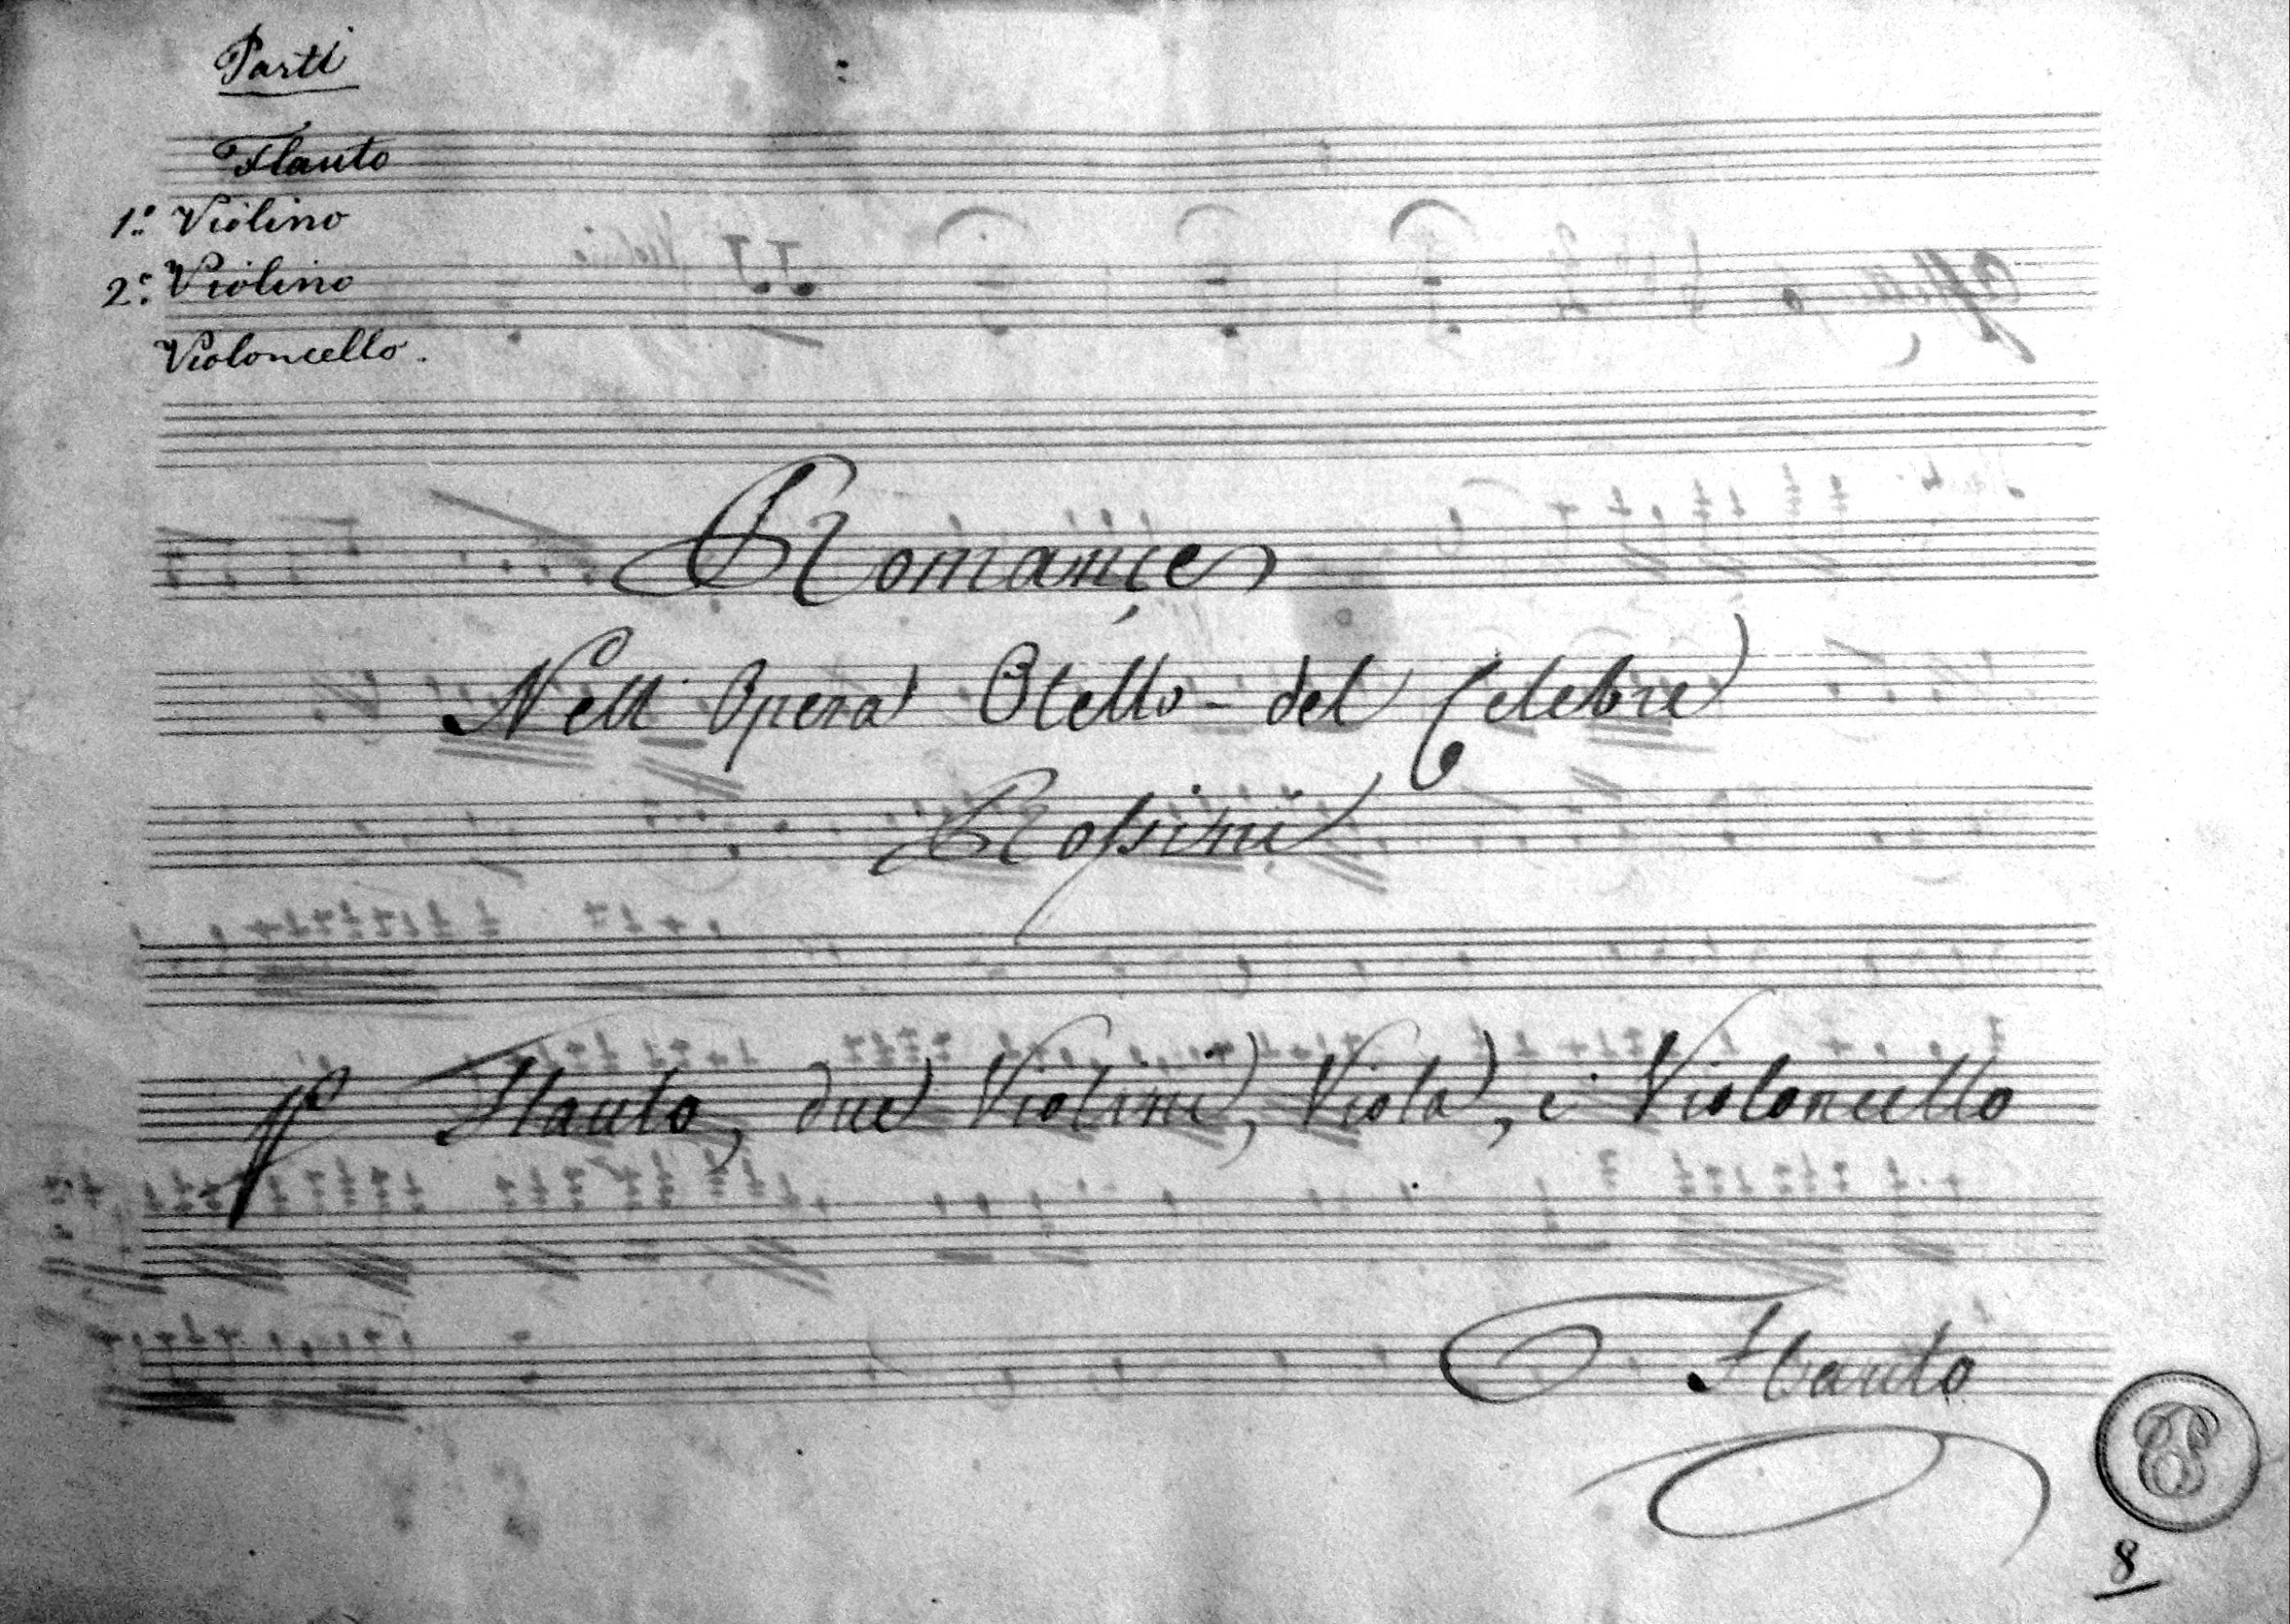 Parti
Flauto
1º Violino
2º Violino
Violoncello.
Romançe
Nell' Opera Otello - del Celebre
Rossini
Flauto, due Violini, Viola, e Violoncello
Flauto
8